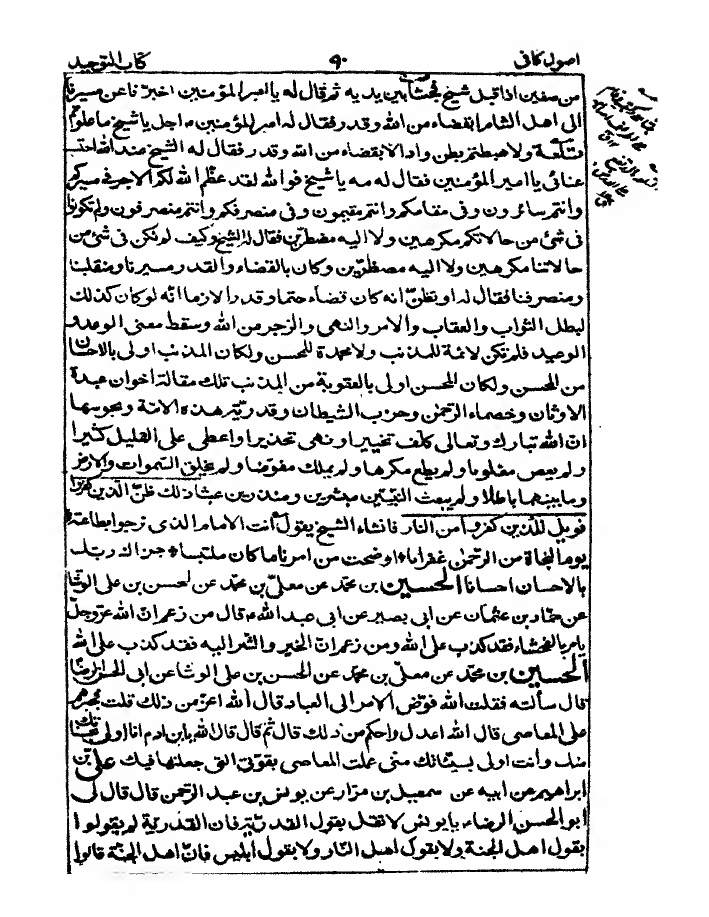 اصول كافى ٩٠ كتاب التوحيد
من صفين اذا قبل شيخ فجثا بين يديه ثم قال له يا امير المؤمنين اخبرنا عن مسيرنا
الى اهل الشام ابقضاء من الله وقدر فقال له امير المؤمنين ء اجل يا شيخ ما علوتم
تلعة ولا هبطتم بطن واد الا بقضاء من الله وقدر فقال له الشيخ عند الله احتسب
عنائى يا امير المؤمنين فقال له مه يا شيخ فو الله لقد عظم الله لكم الاجر فى مسيركم
وانتم سائرون وفى مقامكم وانتم مقيمون وفى منصرفكم وانتم منصرفون ولم تكونوا
فى شئ من حالاتكم مكرهين ولا اليه مضطرين فقال له الشيخ وكيف لم نكن فى شئ من
حالاتنا مكرهين ولا اليه مضطرين وكان بالقضاء والقدر مسيرنا ومنقلبنا
ومنصرفنا فقال له او تظن انه كان قضاء حتما وقدرا لازما انه لو كان كذلك
لبطل الثواب والعقاب والامر والنهى والزجر من الله وسقط معنى الوعد و
الوعيد فلم تكن لائمة للمذنب ولا محمدة للمحسن ولكان المذنب اولى بالاحسان
من المحسن ولكان المحسن اولى بالعقوبة من المذنب تلك مقالة اخوان عبدة
الاوثان وخصماء الرحمن وحزب الشيطان وقدرية هذه الامة ومجوسها
ان الله تبارك وتعالى كلف تخييرا ونهى تحذيرا واعطى على القليل كثيرا
ولم يعص مغلوبا ولم يطع مكرها ولم يملك مفوضا ولم يخلق السموات والارض
وما بينهما باطلا ولم يبعث النبيين مبشرين ومنذرين عبثا ذلك ظن الذين كفروا
فويل للذين كفروا من النار فانشاء الشيخ يقول انت الامام الذى نرجوا بطاعته
يوم النجاة من الرحمن غفرانا * اوضحت من امرنا ما كان ملتبسا * جزاك ربك
بالاحسان احسانا الحسين بن محمد عن معلى بن محمد عن الحسن بن على الوشا
عن حماد بن عثمان عن ابى بصير عن ابى عبد الله ء قال من زعم ان الله عز وجل
يامر بالفحشاء فقد كذب على الله ومن زعم ان الخير والشر اليه فقد كذب على الله
الحسين بن محمد عن معلى بن محمد عن الحسن بن على الوشا عن ابى الحسن الرضا
قال سألته فقلت الله فوض الامر الى العباد قال الله اعز من ذلك قلت فجبرهم
على المعاصى قال الله اعدل واحكم من ذلك قال ثم قال قال الله يا بن ادم انا اولى بحسناتك
منك وانت اولى بسيئاتك منى عملت المعاصى بقوتى التى جعلتها فيك على بن
ابراهيم عن ابيه عن سمعيل بن مرار عن يونس بن عبد الرحمن قال قال لى
ابو الحسن الرضاء يا يونس لا تقل بقول القدرية فان القدرية لم يقولوا
بقول اهل الجنة ولا بقول اهل النار ولا بقول ابليس فان اهل الجنة قالوا